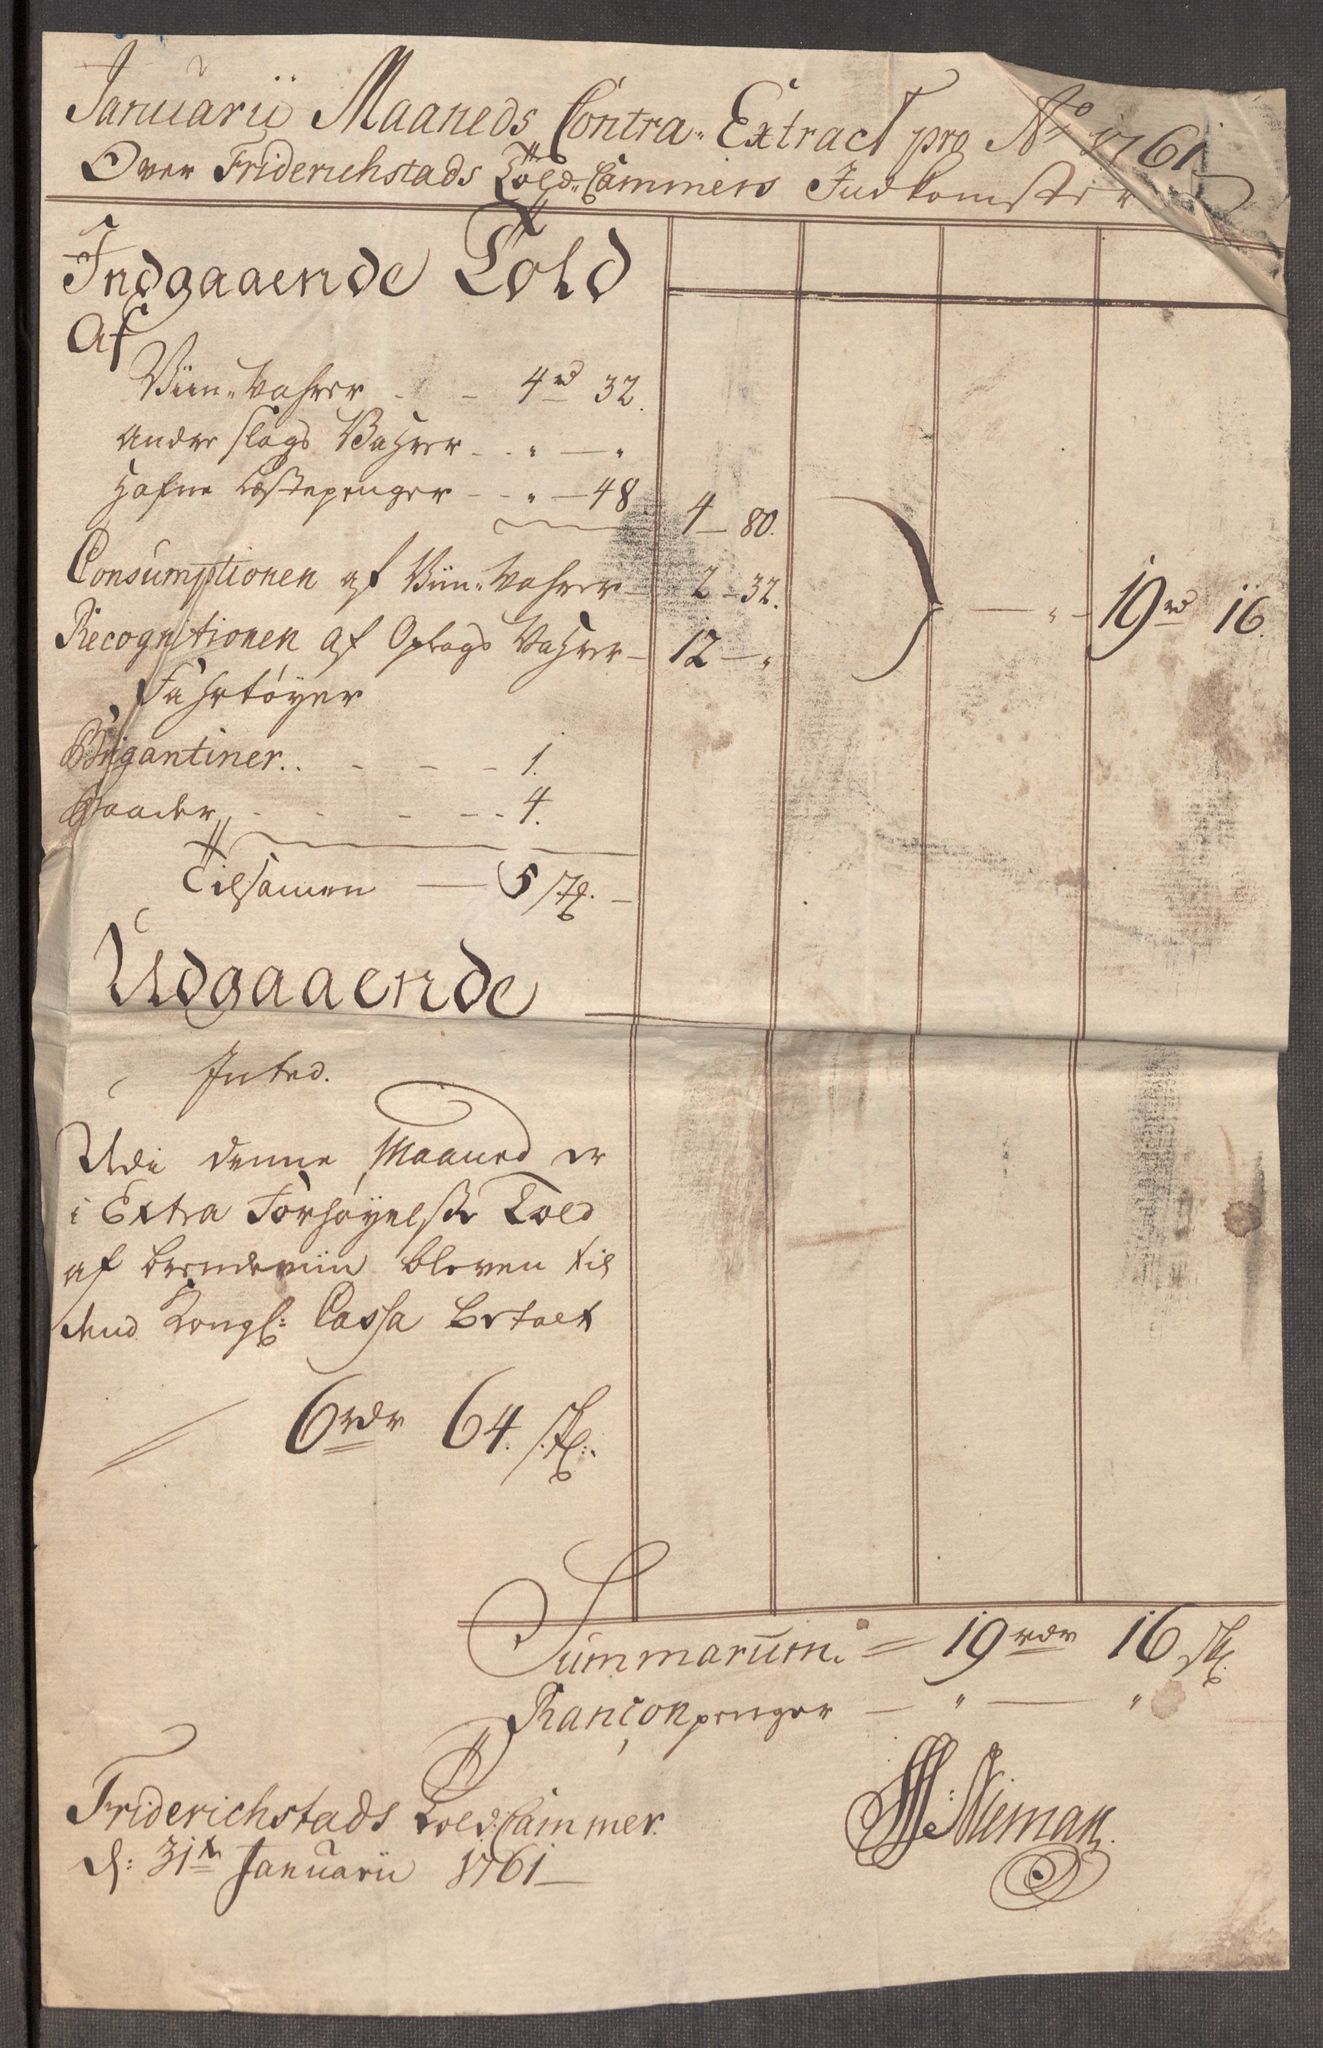 Januarii Maaneds Contra Extract pro Aº 1761
Over Friderichstads Told-Cammers Indkomster
Indgaaende Told
Af
Viin-Vahrer - - 4 rd 32.
Andre slags Vahrer - - " — "
Hafne Læstepenger - - " — 48 4 — 80.
Consumptionen af Viin-Vahrer — 2 — 32. — " — 19 rd 16.
Recognitionen af Oplags Vahrer — 12 — "
Fahrtøyer
Brigantiner - - - - 1.
Baader - - - - 4.
Tilsamen — 5 st. —
Udgaaende
Inted.
Udi denne Maaned er
i Extra Forhøyelse Told
af brendeviin bleven til
Kongl: Cassa betalt
6 rdr 64. s.
Summarum = 19 rdr 16 s.
Rançon penger — " — "
Friderichstads Told-Cammer
d: 31te Januarii 1761 —
Nieman